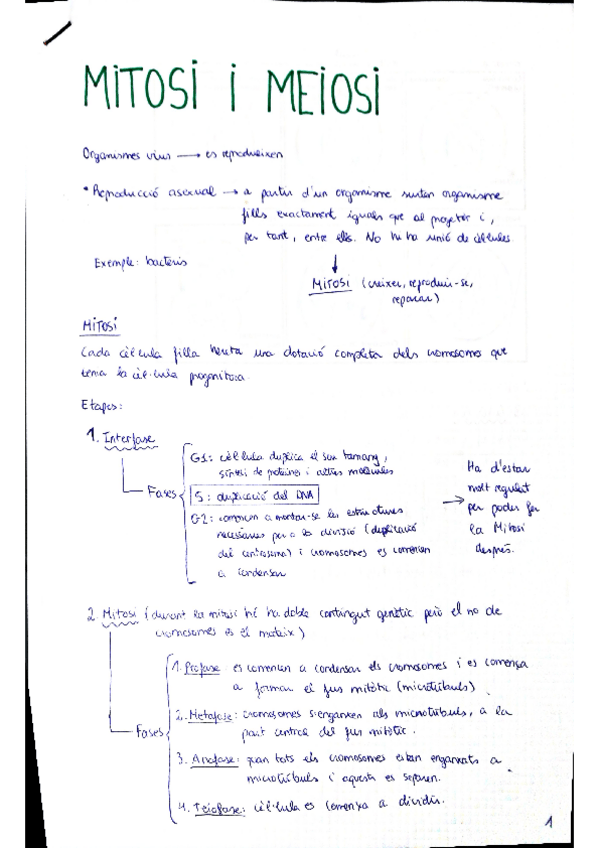 MiTOSi i MEiOSi
Organismes vius → es reprodueixen
* Reproducció asexual → a partir d'un organisme surten organisme
fills exactament iguals que al progenitor i,
per tant, entre ells. No hi ha unió de cèl·lules.
Exemple: bacteris
MiTOSi (créixer, reproduir-se,
reparar)
MiTOSi
Cada cèl·lula filla hereta una dotació completa dels cromosomes que
tenia la cèl·lula progenitora.
Etapes:
1. Interfase
Fases
G1: cèl·lula duplica el seu tamany,
síntesi de proteïnes i altres molècules
S: duplicació del DNA
G2: comencen a montar-se les estructures
necessàries per a la divisió (duplicació
del centrosoma) i cromosomes es comencen
a condensar
Ha d'estar
molt regulat
per poder fer
la Mitosi
després.
2. Mitosi (durant la mitosi hi ha doble contingut genètic però el no de
cromosomes és el mateix)
Fases
1. Profase: es comencen a condensar els cromosomes i es comença
a formar el fus mitòtic (microtúbuls).
2. Metafase: cromosomes s'enganxen als microtúbuls, a la
part central del fus mitòtic.
3. Anafase: quan tots els cromosomes estan enganxats a
microtúbuls i aquests es separen.
4. Telofase: cèl·lula es comença a dividir.
1